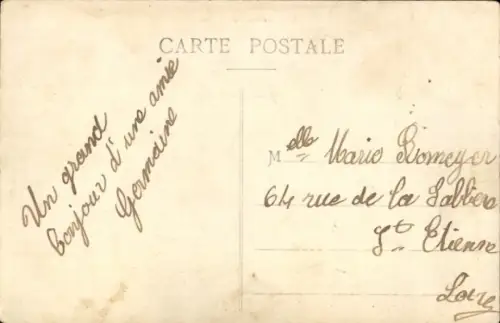 CARTE POSTALE
Un grand
bonjour d'une amie
Germaine
Melle Marie Romeyer
64 rue de la
St Etienne
Loire